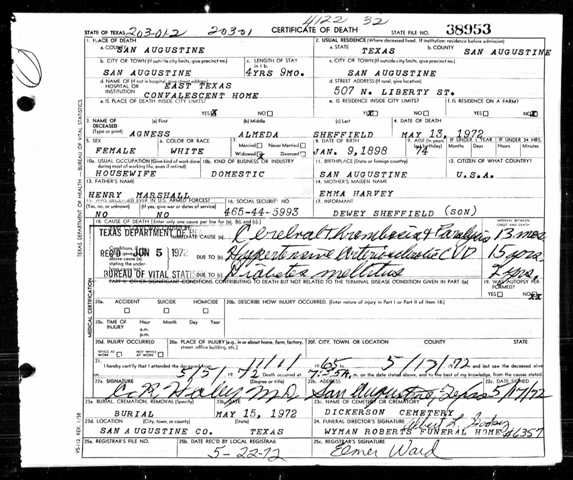 4122 32
STATE OF TEXAS 203-012 20301 CERTIFICATE OF DEATH STATE FILE NO. 38953
1. PLACE OF DEATH 2. USUAL RESIDENCE (Where deceased lived. If institution: residence before admission)
a. COUNTY SAN AUGUSTINE a. STATE TEXAS b. COUNTY SAN AUGUSTINE
b. CITY OR TOWN (If outside city limits, give precinct no.) c. LENGTH OF STAY in 1 b. c. CITY OR TOWN (If outside city limits, give precinct no.)
SAN AUGUSTINE 4YRS 9MO. SAN AUGUSTINE
d. NAME OF (If not in hospital, give street address) d. STREET ADDRESS (If rural, give location)
HOSPITAL OR INSTITUTION EAST TEXAS CONVALESCENT HOME 507 N. LIBERTY ST.
e. IS PLACE OF DEATH INSIDE CITY LIMITS? YES NO e. IS RESIDENCE INSIDE CITY LIMITS? YES NO f. IS RESIDENCE ON A FARM? YES NO
3. NAME OF DECEASED (Type or print) (a) First (b) Middle (c) Last 4. DATE OF DEATH
AGNESS ALMEDA SHEFFIELD MAY 13, 1972
5. SEX 6. COLOR OR RACE 7. Married Never Married Widowed Divorced 8. DATE OF BIRTH 9. AGE IF UNDER 1 YEAR IF UNDER 24 HRS.
FEMALE WHITE JAN. 9, 1898 74
10a. USUAL OCCUPATION (Give kind of work done during most of working life, even if retired) 10b. KIND OF BUSINESS OR INDUSTRY 11. BIRTHPLACE (State or foreign country) 12. CITIZEN OF WHAT COUNTRY?
HOUSEWIFE DOMESTIC SAN AUGUSTINE U.S.A.
13. FATHER'S NAME 14. MOTHER'S MAIDEN NAME
HENRY MARSHALL EMMA HARVEY
15. WAS DECEASED EVER IN U.S. ARMED FORCES? 16. SOCIAL SECURITY NO. 17. INFORMANT
NO NO 465-44-5993 DEWEY SHEFFIELD (SON)
18. CAUSE OF DEATH [Enter only one cause per line for (a), (b), and (c).] INTERVAL BETWEEN ONSET AND DEATH
TEXAS DEPARTMENT OF CAUSE (a) Cerebral thrombosis & Paralysis 13 mos.
REC'D JUN 5 1972 DUE TO (b) Hypertensive Arteriosclerotic CVD 15 yrs.
BUREAU OF VITAL STATIS DUE TO (c) Diabetes mellitus
PART II. OTHER SIGNIFICANT CONDITIONS CONTRIBUTING TO DEATH BUT NOT RELATED TO THE TERMINAL DISEASE CONDITION GIVEN IN PART I(a) 19. WAS AUTOPSY PERFORMED? YES NO
20a. ACCIDENT SUICIDE HOMICIDE 20b. DESCRIBE HOW INJURY OCCURRED. (Enter nature of injury in Part I or Part II of item 18.)
20c. TIME OF INJURY Hour Month Day Year
a.m.
p.m.
20d. INJURY OCCURRED WHILE AT WORK NOT WHILE AT WORK 20e. PLACE OF INJURY (e.g., in or about home, farm, factory, street, office building, etc.) 20f. CITY, TOWN, OR LOCATION COUNTY STATE
21. I hereby certify that I attended the deceased from
Death occurred at m. on the date stated above, and to the best of my knowledge, from the causes stated.
22a. SIGNATURE (Degree or title) 22b. ADDRESS 22c. DATE SIGNED
M.D. San Augustine, Texas
23a. BURIAL, CREMATION, REMOVAL (Specify) 23b. DATE 23c. NAME OF CEMETERY OR CREMATORY
BURIAL MAY 15, 1972 DICKERSON CEMETERY
23d. LOCATION (City, town, or county) (State) 24. FUNERAL DIRECTOR'S SIGNATURE
SAN AUGUSTINE CO. TEXAS WYMAN ROBERTS FUNERAL HOME #6357
25a. REGISTRAR'S FILE NO. 25b. DATE REC'D BY LOCAL REGISTRAR 25c. REGISTRAR'S SIGNATURE
5-22-72 Elmer Ward
TEXAS DEPARTMENT OF HEALTH — BUREAU OF VITAL STATISTICS
MEDICAL CERTIFICATION